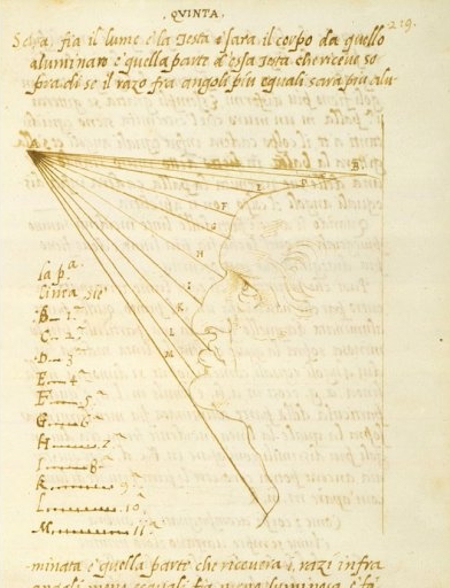 QVINTA.
219.
Sara fia il lume e la testa e sara il corpo da quello
aluminato e quella parte d'essa testa che riceve so
pra di se il razo fra angoli piu equali sara piu alu
B.
E
F
G
H
I
K
L
M
la p.a
linea sie
B 1.
C 2.
D 3
E 4
F 5
G 6
H 7.
I 8
K 9
L 10.
M 11
minata e quella parte che ricevera i razi infra
angoli meno equali fia meno luminosa e fa